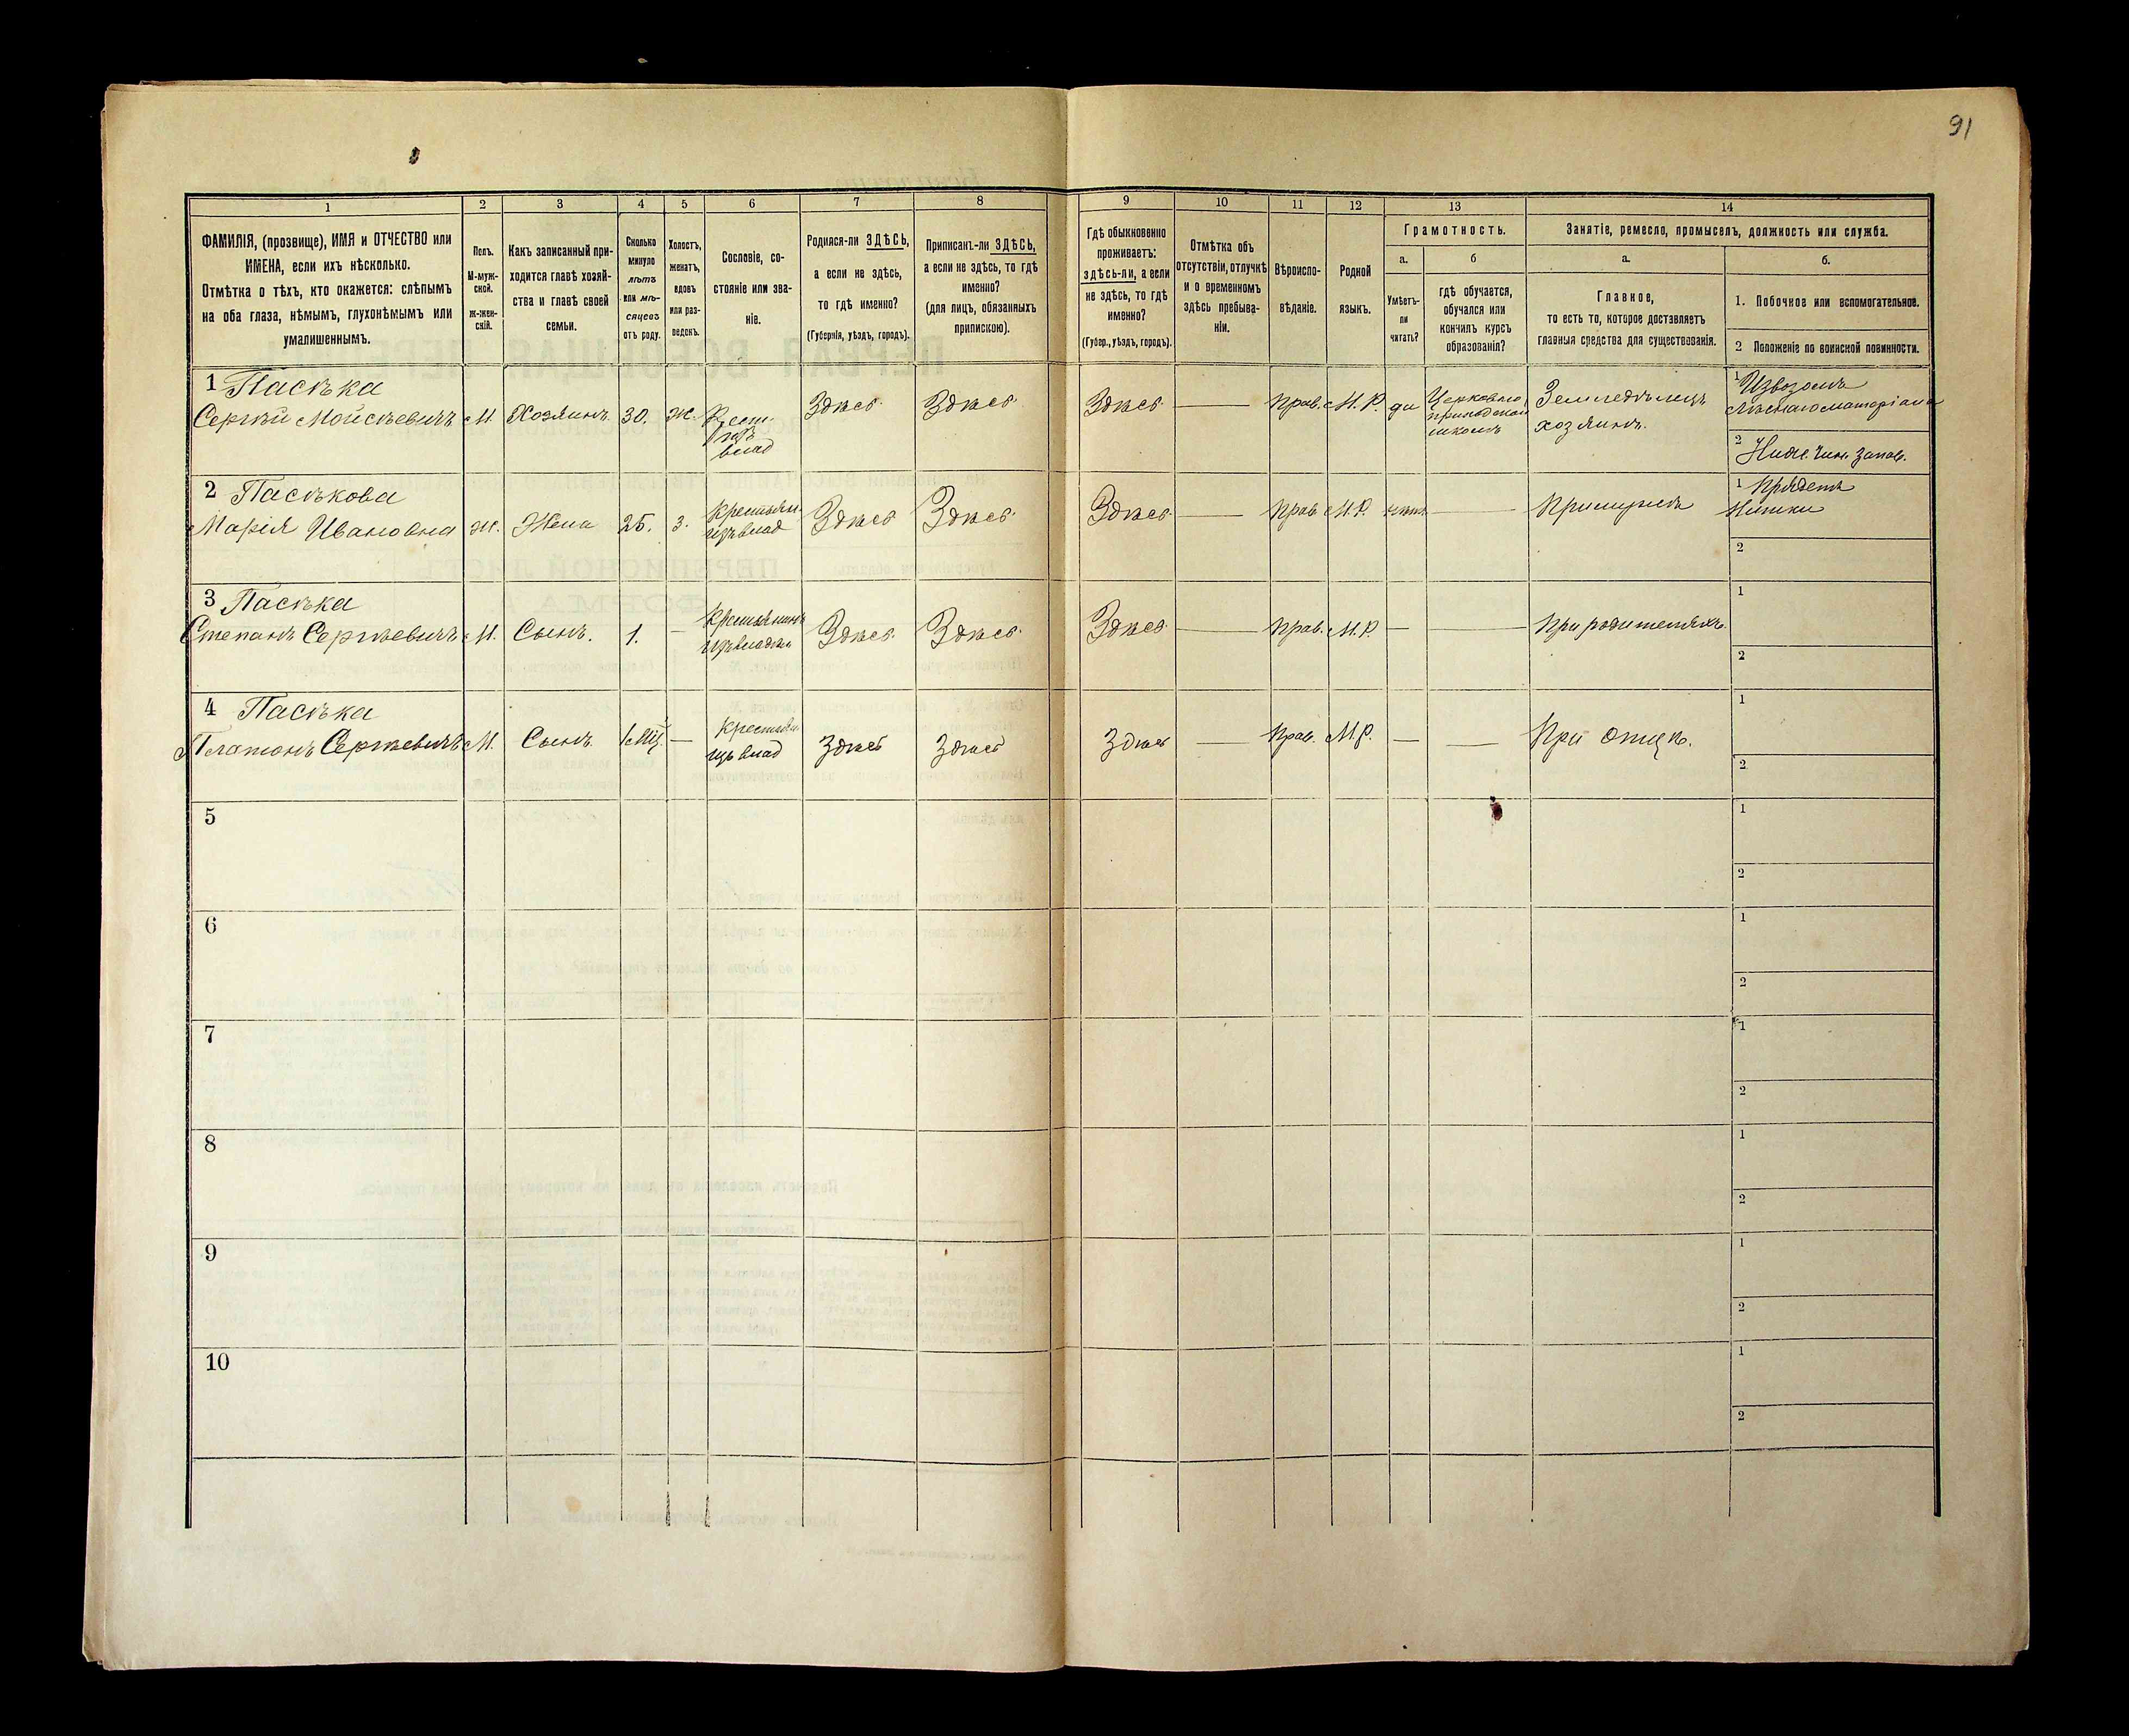 91
1
2
3
4
5
6
7
8
9
10
11
12
13
14
ФАМИЛІЯ, (прозвище), ИМЯ и ОТЧЕСТВО или
ИМЕНА, если ихъ нѣсколько.
Отмѣтка о тѣхъ, кто окажется: слѣпымъ
на оба глаза, нѣмымъ, глухонѣмымъ или
умалишеннымъ.
Полъ.
М-муж-
ской.
Ж-жен-
скій.
Какъ записанный при-
ходится главѣ хозяй-
ства и главѣ своей
семьи.
Сколько
минуло
лѣтъ
или мѣ-
сяцевъ
отъ роду.
Холостъ,
женатъ,
вдовъ
или раз-
веденъ.
Сословіе, со-
стояніе или зва-
ніе.
Родился-ли ЗДѢСЬ,
а если не здѣсь,
то гдѣ именно?
(Губернія, уѣздъ, городъ).
Приписанъ-ли ЗДѢСЬ,
а если не здѣсь, то гдѣ
именно?
(для лицъ, обязанныхъ
припискою).
Гдѣ обыкновенно
проживаетъ:
здѣсь-ли, а если
не здѣсь, то гдѣ
именно?
(Губер., уѣздъ, городъ).
Отмѣтка объ
отсутствіи, отлучкѣ
и о временномъ
здѣсь пребыва-
ніи.
Вѣроиспо-
вѣданіе.
Родной
языкъ.
Грамотность.
а.
Умѣетъ-
ли
читать?
б
гдѣ обучается,
обучался или
кончилъ курсъ
образованія?
Занятіе, ремесло, промыселъ, должность или служба.
а.
Главное,
то есть то, которое доставляетъ
главныя средства для существованія.
б.
1. Побочное или вспомогательное.
2 Положеніе по воинской повинности.
1 Пасѣка
Сергѣй Мойсѣевичъ
М.
Хозяинъ
30.
Ж.
Крест.
изъ
влад
Здѣсь
Здѣсь
Здѣсь
Прав.
М. Р.
да
Церковно
приходской
школѣ
Земледѣлецъ
хозяинъ.
1 Извозомъ
лѣснаго матеріала
2 Ниж. Чин. Запас.
2 Пасѣкова
Марія Ивановна
Ж.
Жена
25.
З.
Крестьян.
изъ влад
Здѣсь
Здѣсь
Здѣсь
Прав
М. Р.
нѣтъ
При мужѣ
1 Прядетъ
Нитки
2
3 Пасѣка
Степанъ Сергѣевичъ
М.
Сынъ.
1.
Крестьянинъ
изъ влад
Здѣсь
Здѣсь
Здѣсь
Прав.
М. Р.
При родителяхъ
1
2
4 Пасѣка
Платонъ Сергѣевичъ
М.
Сынъ
1 Мц.
Крестьян
изъ влад
Здѣсь
Здѣсь
Здѣсь
Прав.
М. Р.
При отцѣ.
1
2
5
1
2
6
1
2
7
1
2
8
1
2
9
1
2
10
1
2